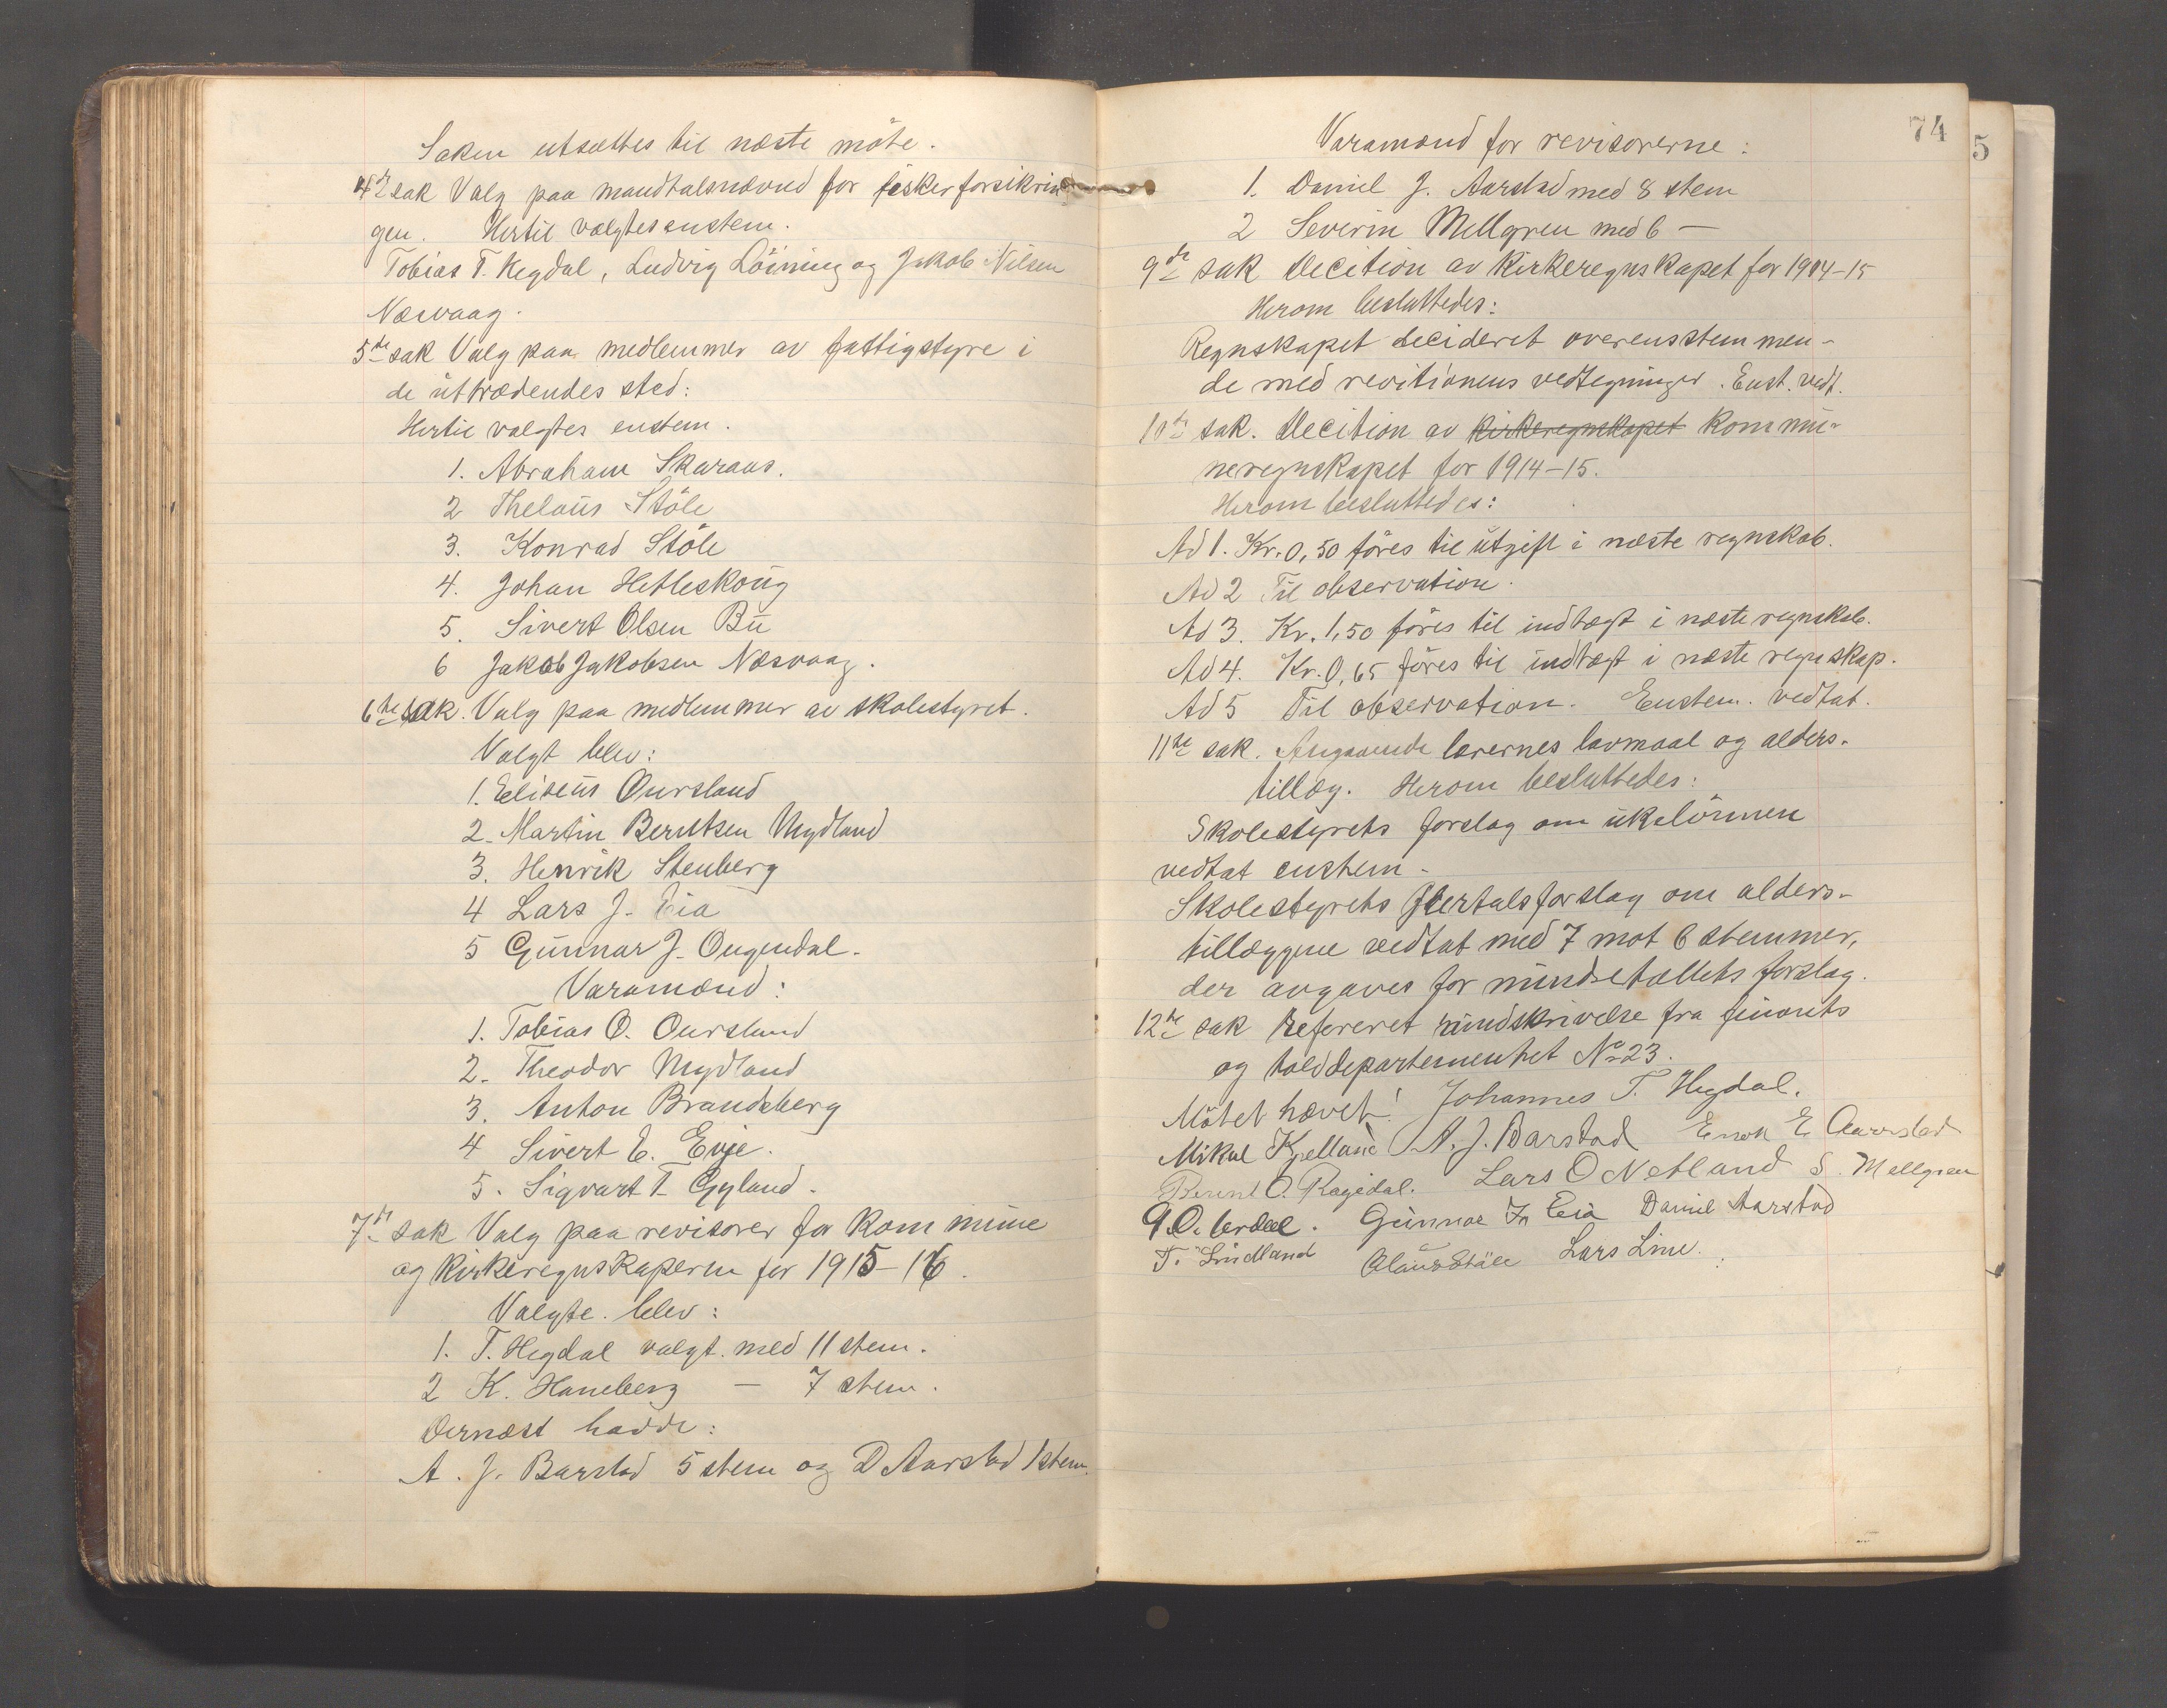 Saken utsættes til næste möte.
4de sak Valg paa mandtalsnævnd for fiskerforsikrin
gen. Hertil valgtes enstem.
Tobias T. Hegdal, Ludvig Löining og Jakob Nilsen
Nesvaag.
5te sak Valg paa medlemmer av fattigstyre i
de uttrædendes sted:
Hertil valgtes enstem.
1. Abraham Skaraas.
2 Thelaus Støle
3. Konrad Støle
4. Johan Hetleskoug
5. Sivert Olsen Bu
6 Jakob Jakobsen Nesvaag.
6te sak. Valg paa medlemmer av skolestyret.
Valgt blev:
1. Eliseus Oursland
2. Martin Berntsen Mydland
3. Henrik Stenberg
4 Lars J. Eia
5 Gunnar J. Ougendal.
Varamænd:
1. Tobias O. Oursland
2. Theodor Mydland
3. Anton Brandsberg
4 Sivert E. Evje.
5. Sigvart T. Gyland.
7de sak Valg paa revisorer for kommune
og kirkeregnskaperne for 1915-16.
Valgte blev:
1. T. Hegdal valgt med 11 stem.
2 K. Haneberg — 7 stem.
Dernæst hadde:
A. J. Barstad 5 stem og D Aarstad 1 stem.
74
5
Varamænd for revisorerne:
1. Daniel J. Aarstad med 8 stem
2 Severin Mellgren med 6 —
9de sak Decition av kirkeregnskapet for 1914-15
Herom besluttedes:
Regnskapet decideret overensstemmen-
de med revitionens vedtegninger. Enst. vedt.
10de sak. Decition av kirkeregnskapet kommu-
neregnskapet for 1914-15.
Herom besluttedes:
Ad 1. Kr. 0,50 föres til utgift i næste regnskab.
Ad 2 Til observation.
Ad 3. Kr. 1,50 föres til indtægt i næste regnskab.
Ad 4. Kr. 0,65 föres til indtægt i næste regnskap.
Ad 5 Til observation. Enstem. vedtat.
11te sak. Angaaende lærernes lavmaal og alders-
tillæg. Herom besluttedes:
Skolestyrets forslag om ukelönnen
vedtat enstem.
Skolestyrets flertalsforslag om alders-
tillæggene vedtat med 7 mot 6 stemmer,
der avgaves for mindretallets forslag.
12te sak Refereret rundskrivelse fra finants
og tolddepartementet No 23.
Mötet hævet! Johannes T. Hegdal.
Mikal Kjelland A. J. Barstad Enok E. Aarrestad
Bernt O. Ragedal. Lars O Netland S. Mellgren
Gunnar Eia Daniel Aarstad
T. Lindland Olaus Støle Lars Line.